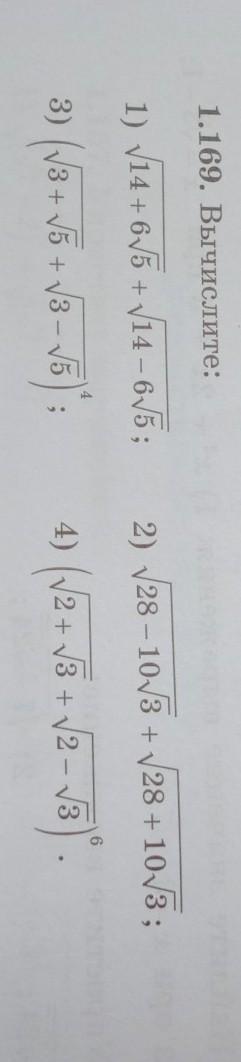 1.169. Вычислите:
1) √(14 + 6√5) + √(14 − 6√5); 2) √(28 − 10√3) + √(28 + 10√3);
3) (√(3 + √5) + √(3 − √5))⁴; 4) (√(2 + √3) + √(2 − √3))⁶.